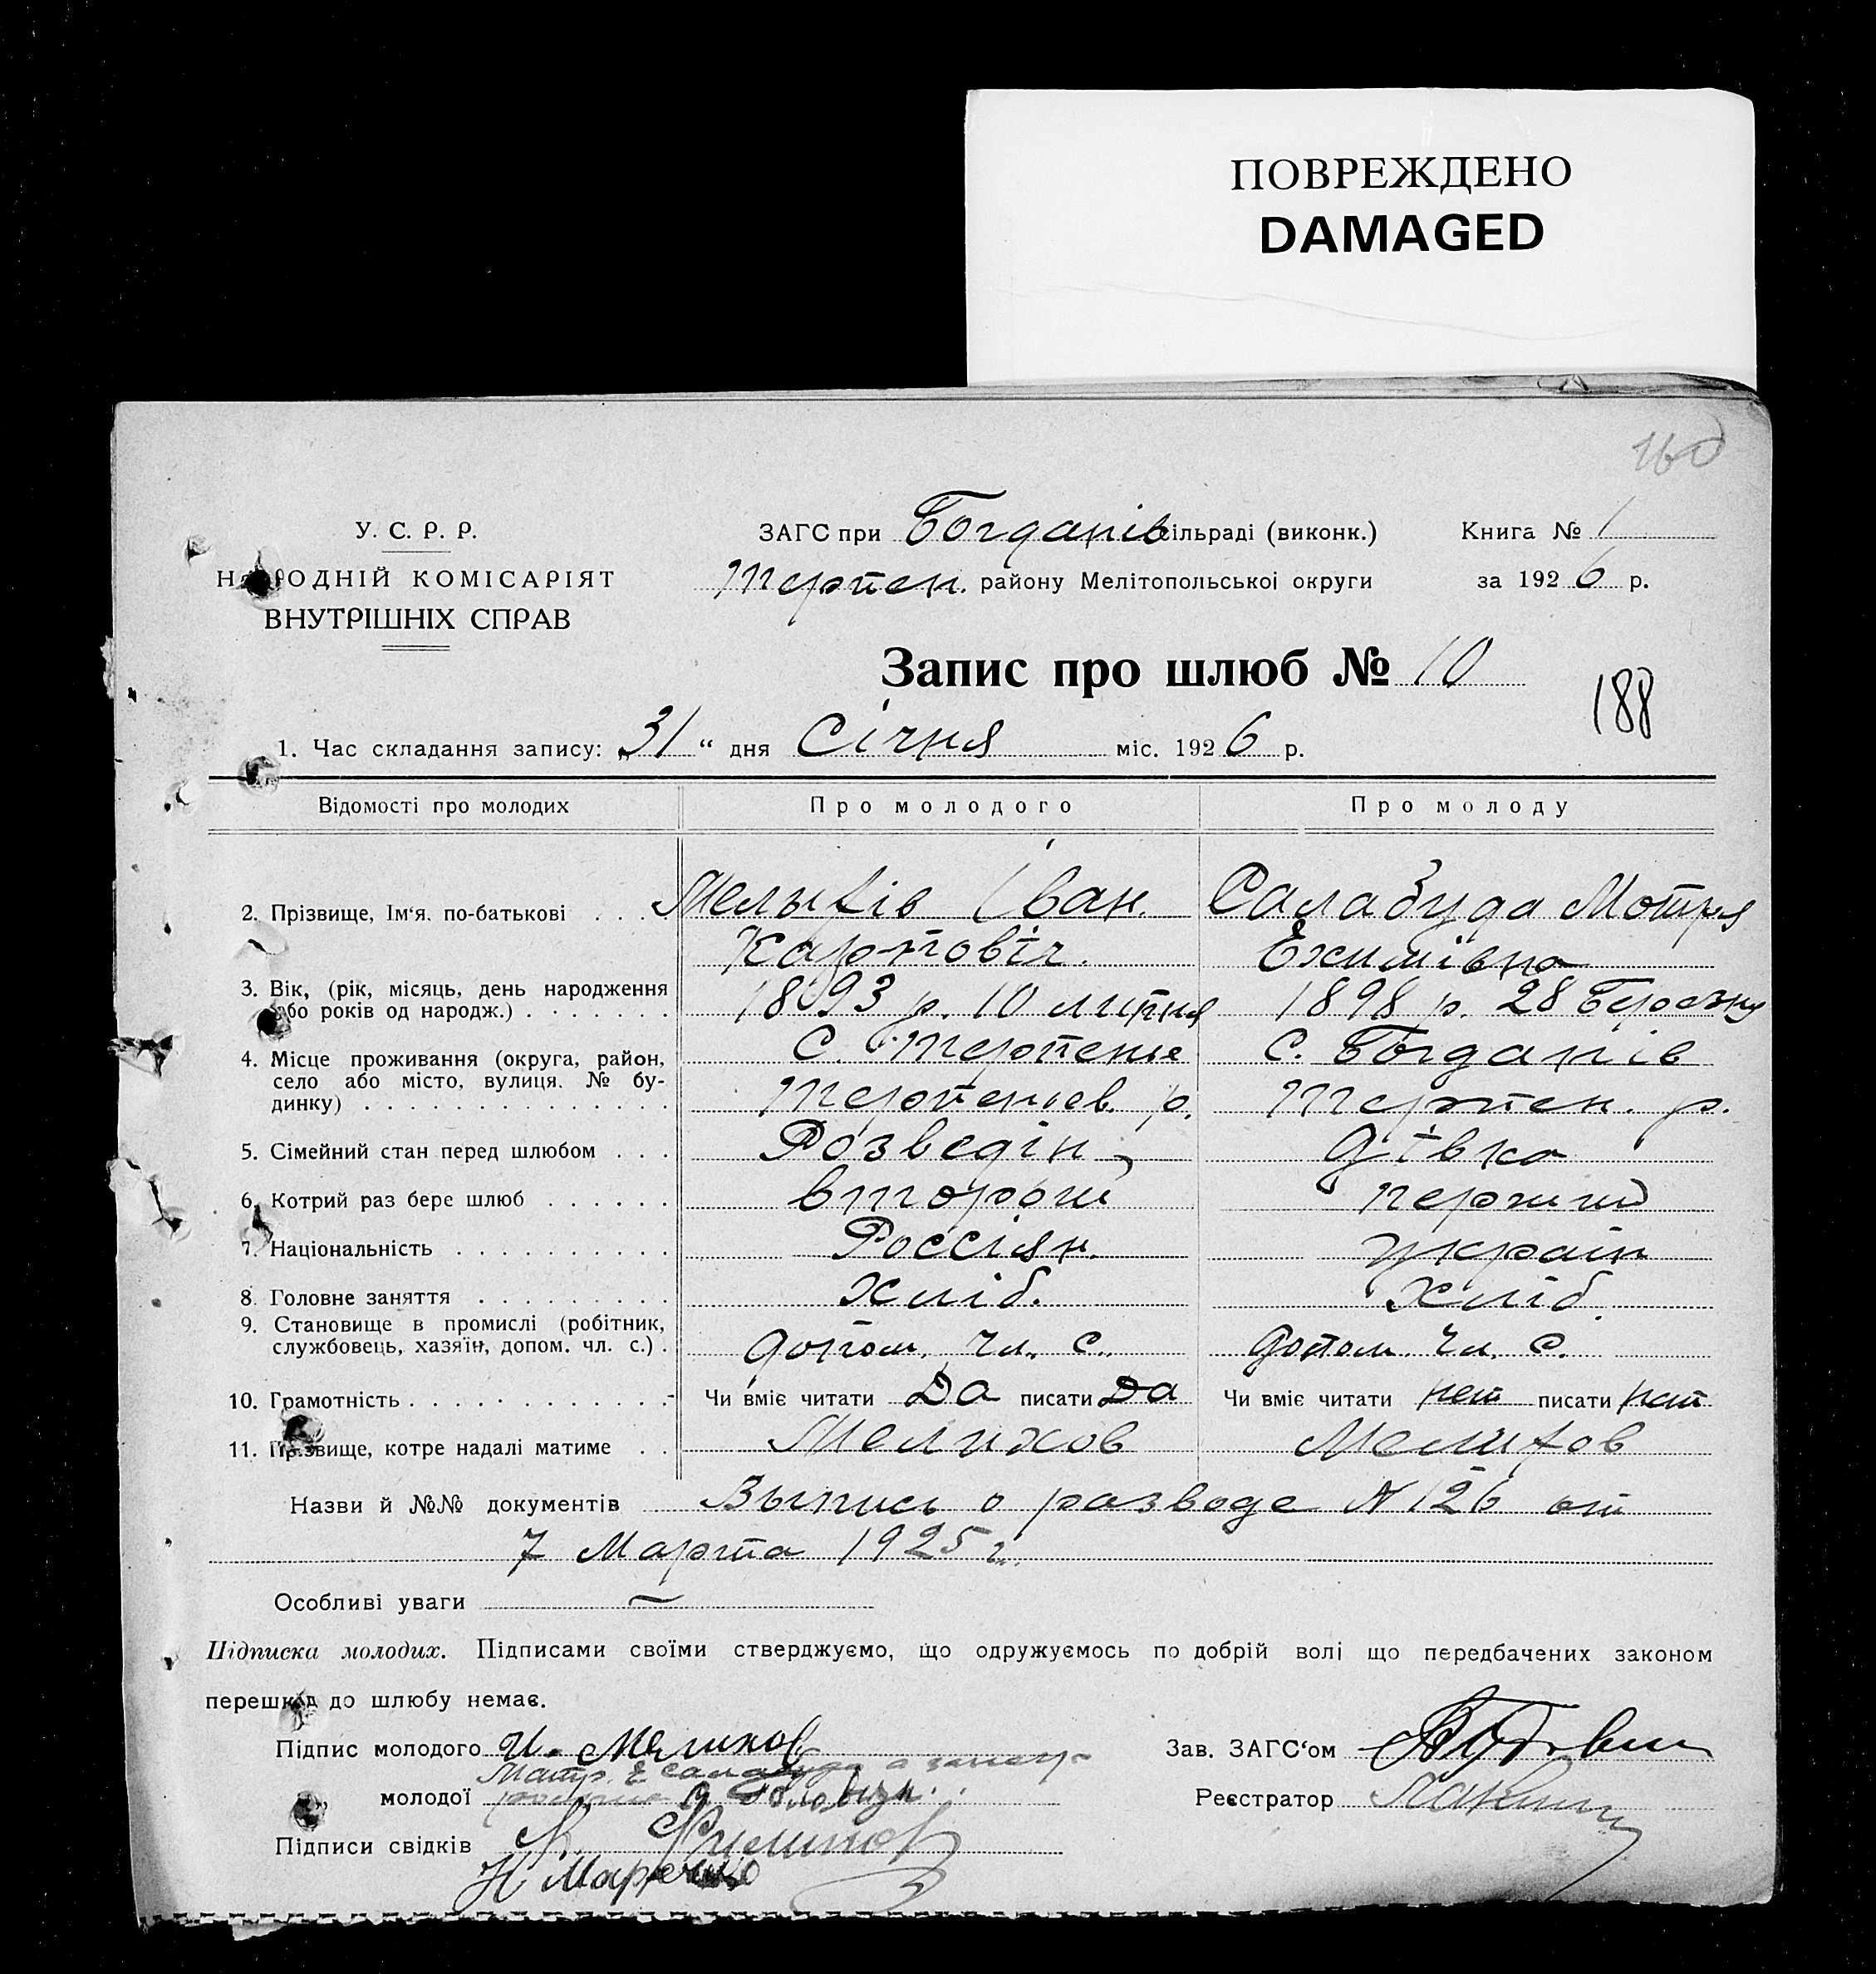 ПОВРЕЖДЕНО
DAMAGED
У. С. Р. Р.
НАРОДНІЙ КОМІСАРІЯТ
ВНУТРІШНІХ СПРАВ
ЗАГС при Богданів сільраді (виконк.) Книга № 1
Терпен. району Мелітопольської округи за 1926 р.
Запис про шлюб № 10
188
1. Час складання запису: „31“ дня Січня міс. 1926 р.
Відомості про молодих Про молодого Про молоду
2. Прізвище, Ім'я. по-батькові . . . Іван. Салабуда Мотря
Карпович.
3. Вік, (рік, місяць, день народження
або років од народж.) . . . . . . . 1893 р. 10 липня 1898 р. 28 Березня
4. Місце проживання (округа, район, с. Терпеніє с. Богданів
село або місто, вулиця. № бу-
динку) . . . . . . . . . . . . . . Терпеньев. р. Терпен. р.
5. Сімейний стан перед шлюбом . . . Розведін, дівка
6. Котрий раз бере шлюб . . . . . . второй перший
7. Національність . . . . . . . . . . Россіян. україн
8. Головне заняття . . . . . . . . . Хліб. Хліб.
9. Становище в промислі (робітник,
службовець, хазяїн, допом. чл. с.) . допом. чл. с. допом. чл. с.
10. Грамотність . . . . . . . . . . . . Чи вміє читати Да писати Да Чи вміє читати нет писати нет
11. Прізвище, котре надалі матиме . . Мелихов Мелихов
Назви й №№ документів Выпись о разводе N 126 от
7 Марта 1925 г.
Особливі уваги —
Підписка молодих. Підписами своїми стверджуємо, що одружуємось по добрій волі що передбачених законом
перешкод до шлюбу немає.
Підпис молодого И. Мелихов Зав. ЗАГС'ом
молодої Реєстратор
Підписи свідків